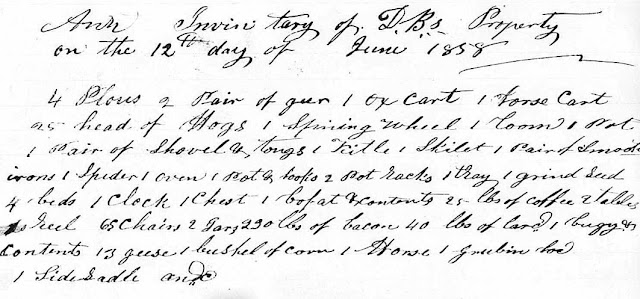 Ann Invin tary of D. Bs Property
on the 12th day of June 1858
4 Plous 2 Pair of geer 1 ox cart 1 horse Cart
25 head of Hogs 1 Spining wheel 1 Loom 1 Pot
1 Pair of Shovel & tongs 1 Kitle 1 Skilet 1 Pair of Smooth
irons 1 Spider 1 oven 1 Pot & hooks 2 Pot racks 1 tray 1 grind
4 beds 1 Clock 1 Chest 1 bofat & contents 25 lbs of coffee 2 tables
1 Reel 6 Chairs 2 Jars 230 lbs of bacon 40 lbs of lard 1 bugy &
Contents 13 geese 1 bushel of corn 1 Horse 1 grubin hoe
1 Side Sadle and